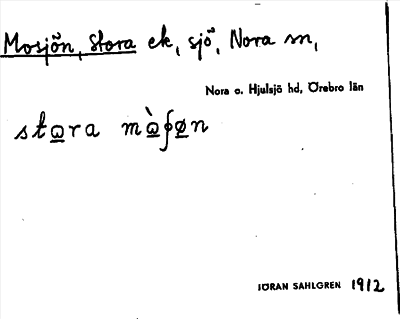 Mosjön, Stora ek, sjö, Nora sn,
Nora o. Hjulsjö hd, Örebro län
sto̲ra mò̲ʄø̲n
JÖRAN SAHLGREN 1912